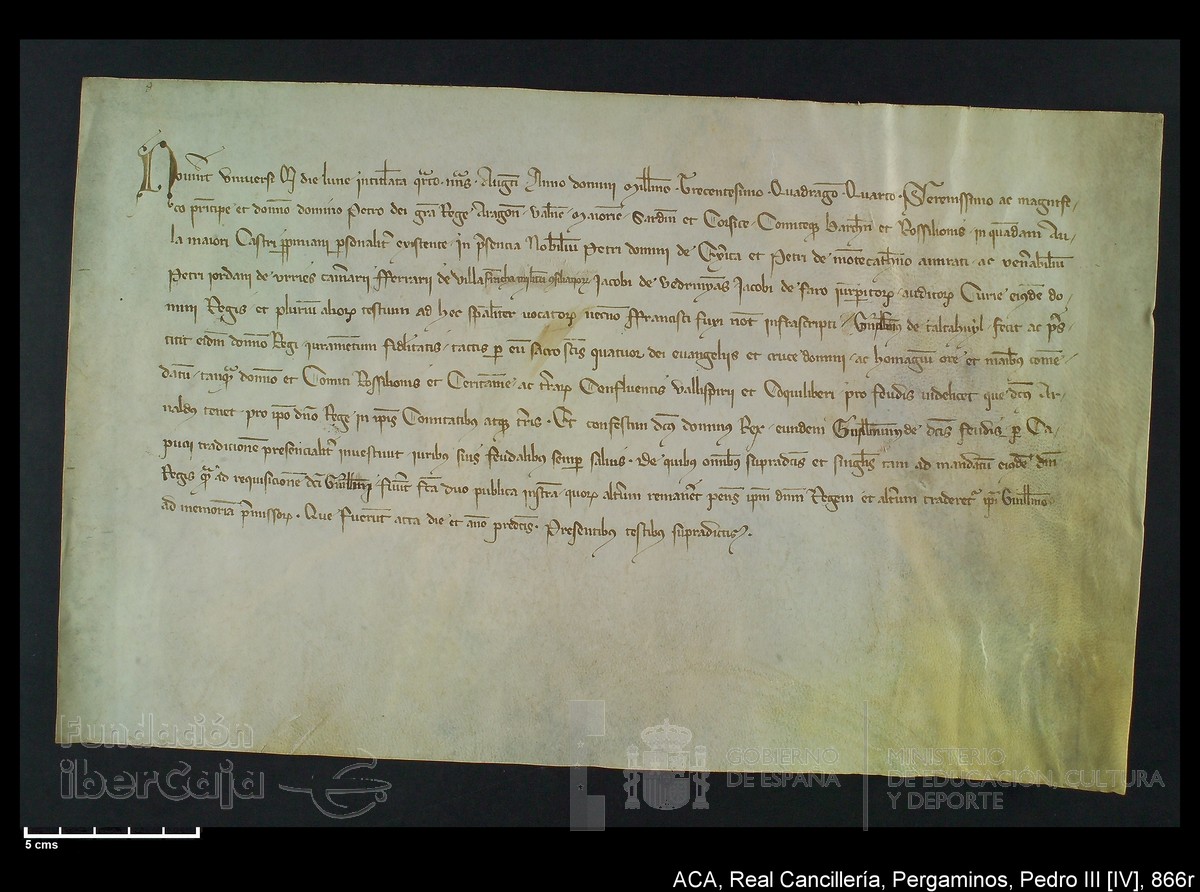 Noverīt universi Q̄ die lune intitl̄ata qr̄to nōns Augusti Anno domini Mill̄mo Trecentesimo Quadrageō Quarto Serenissimo ac magnifi-
co prīncipe et domno domino Petro dei grā Rege Aragon̄ Valn̄e Maioric̄ Sardin̄ et Corsice Comiteqȝ Barchn̄ et Rossilionis in quadam Au-
la maiori Castri ppiniani psonalit̄ existente in p̄sencia Nobiliū Petri domini de Exerica et Petri de montecathn̄o amirati ac ven̄abiliū
Petri iordani de urries cam̄arii fferrarii de villa militū Jacobi de Jacobi de faro iurpitorꝝ auditorꝝ Curie eiusdē do-
mini Regis et pluriū aliorꝝ testium ad hec spāliter vocatorꝝ necnō ffrancisci fuxi not̄ infrascripti Guill̄m de talcahuyl fecit ac p̄s-
titit eidm̄ domno Regi iuramentum fidelitatis tactis p eū sacro sc̄is quatuor dei evangeliis et cruce domini ac homagiū ore et manibus comē-
datū tanqȝ domno et Comiti Rossilionis et Ceritanie ac trārꝝ Confluentis Vallispirii et Coquiliberi pro feudis videlicet que dc̄us Ar-
naldus tenet pro ip̄o dn̄o Rege in ip̄is Comitatibus atqȝ tr̄is Et confestim dc̄us dominus Rex eundem Guill̄mum de dc̄is feudis p Ca-
pucii tradicionē presencialit̄ investivit iuribus suis feudalibus semp salvis De quibus omībus supradc̄is et singl̄is tam ad mandatū eiusdē dn̄i
Regis qꝫ ad requisicionē dc̄i Guill̄mi fiūnt fc̄a duo publica instr̄a quorꝝ altrum remanet penes ip̄m dnm̄ Regem et altrum traderet̄ ip̄i Guill̄mo
ad memoriā p̄missorꝝ Que fuerunt acta die et anno predc̄is Presentibus testibus supradictis
Fundación
iberCaja
GOBIERNO
DE ESPAÑA
MINISTERIO
DE EDUCACIÓN, CULTURA
Y DEPORTE
5 cms
ACA, Real Cancillería, Pergaminos, Pedro III [IV], 866r